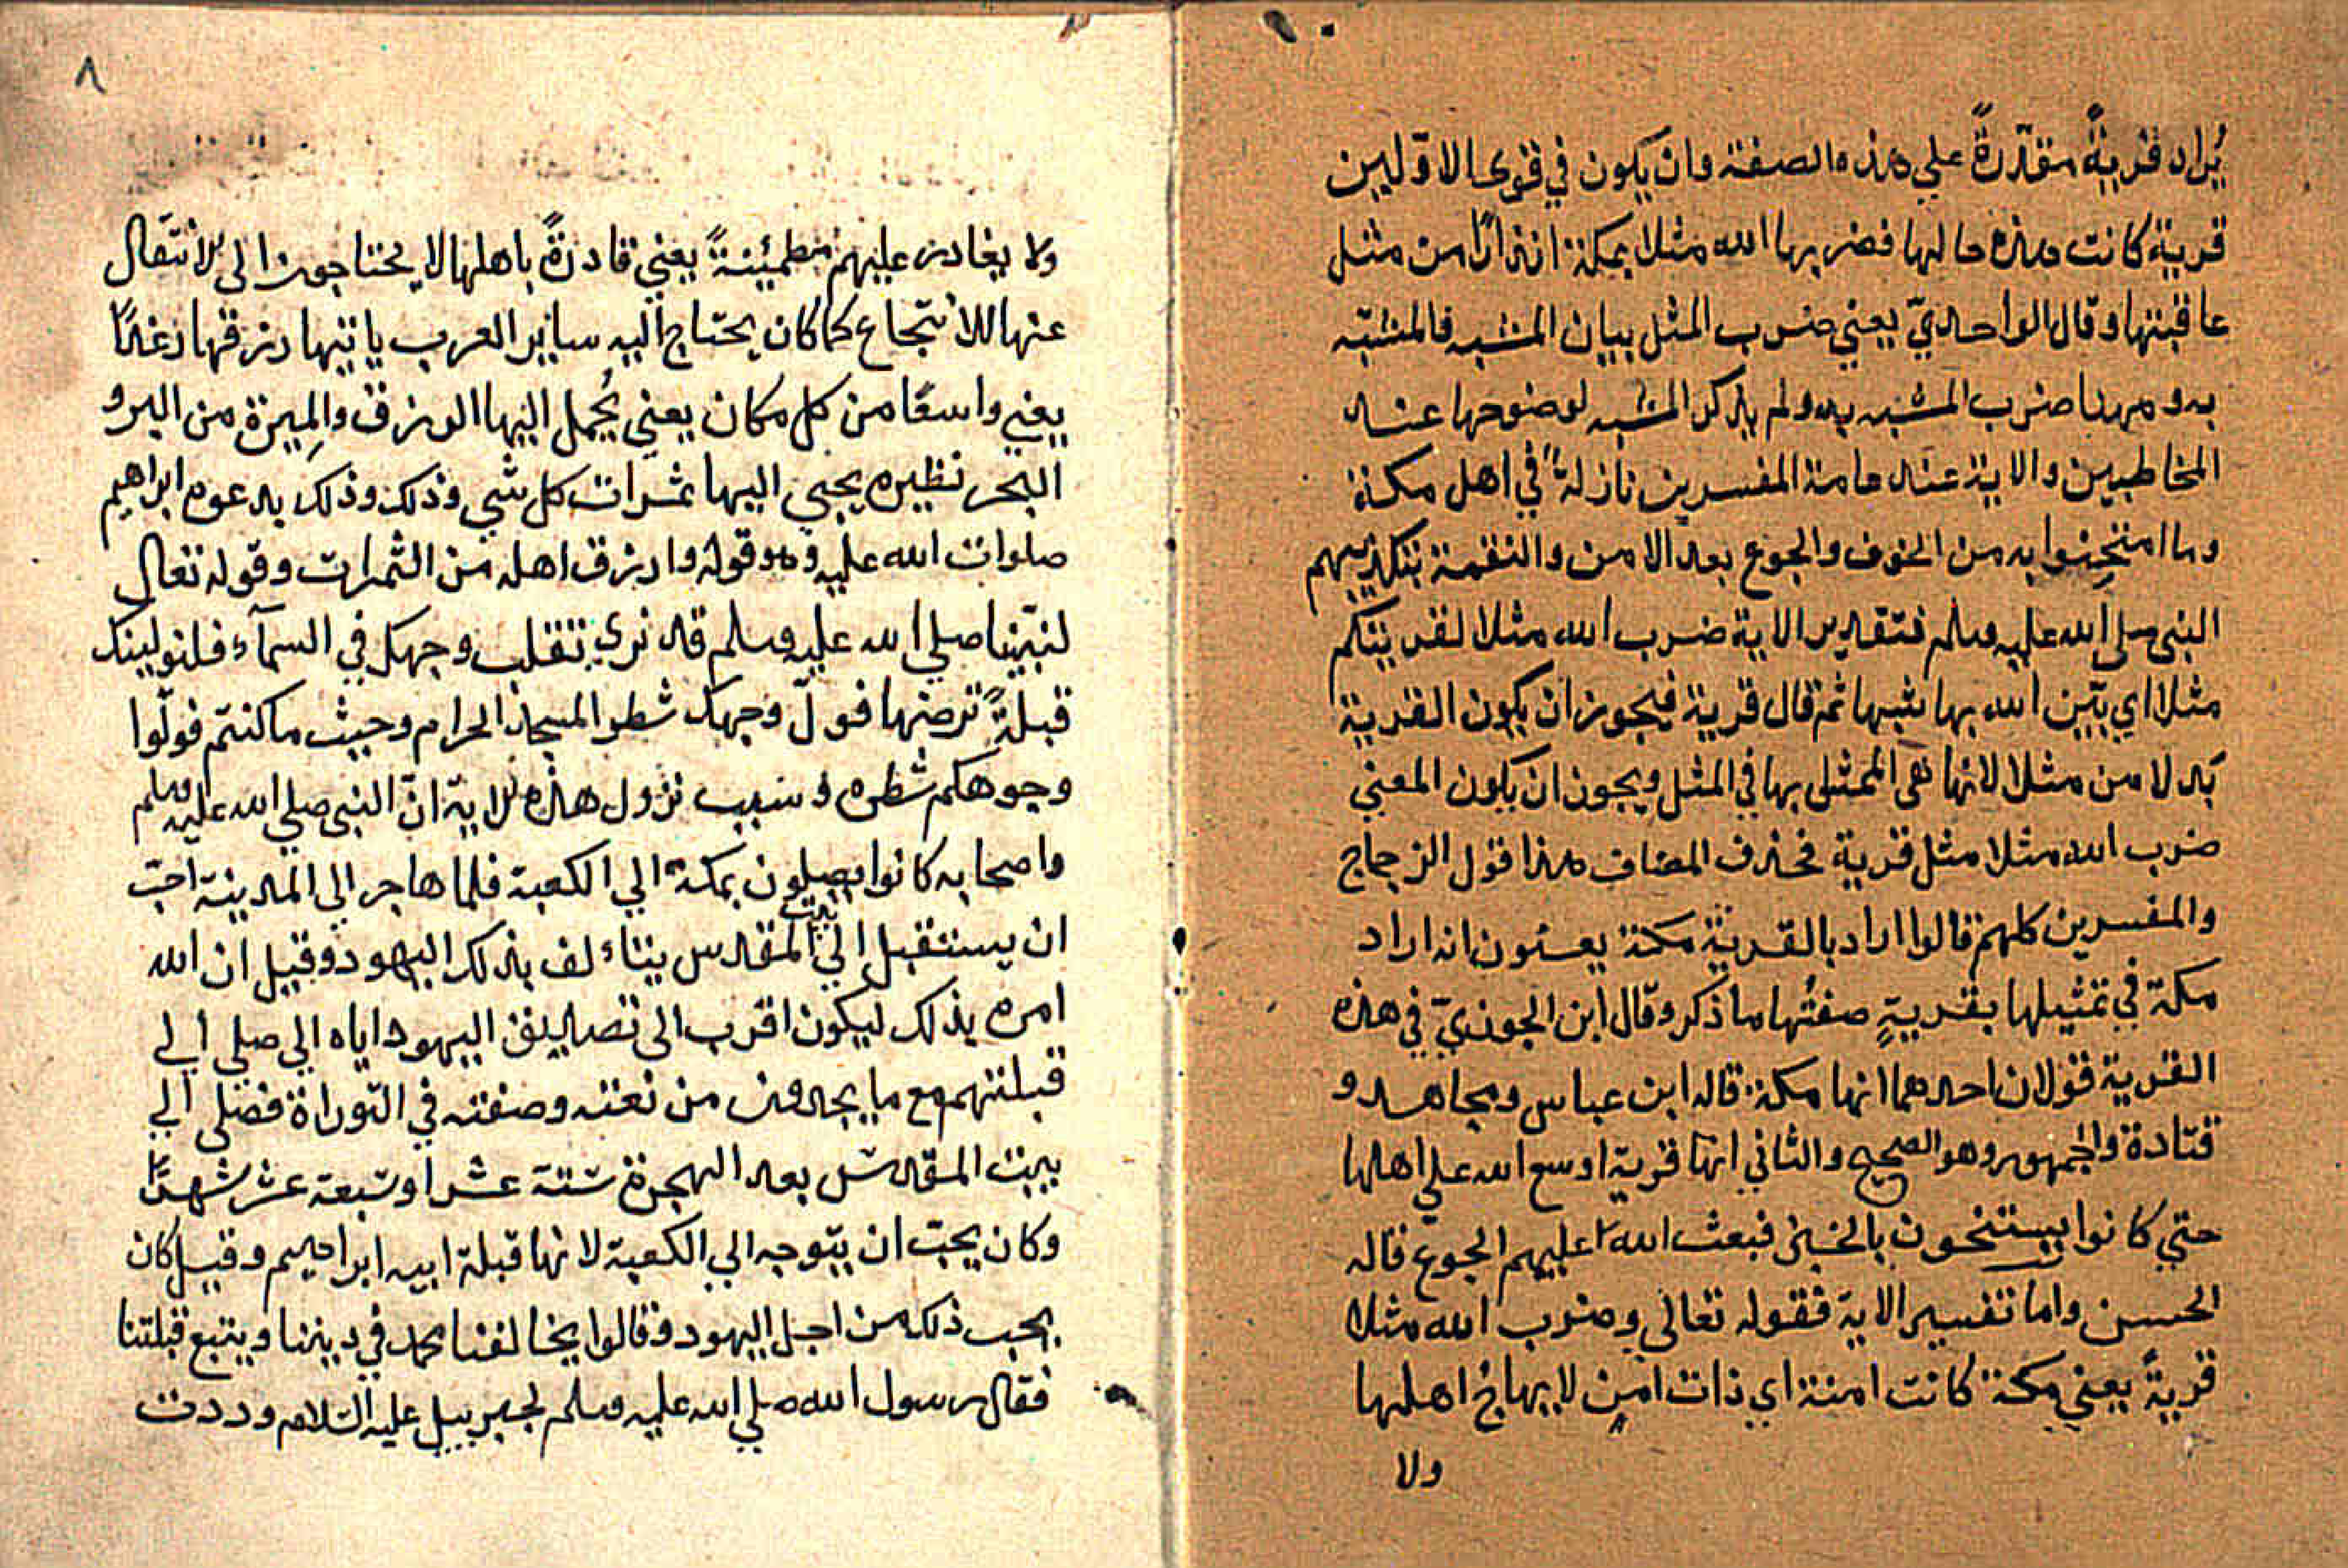 يُراد قريةً مقدّرةً علي هذه الصفة وان يكون في قرى الاوّلين
قرية كانت هذه حالها فضربها الله مثلا بمكة انذارًا من مثل
عاقبتها وقال الواحديّ يعني ضرب المثل بيان المشبه فالمشبّه
به وههنا ضرب المشبه به ولم يذكر المشبه لوضوحها عند
المخاطبين والاية عند عامة المفسرين نازلةً في اهل مكة
وما امتحِنوا به من الخوف والجوع بعد الامن والنقمة بتكذيبهم
النبي صلى الله عليه وسلم فتقدير الاية ضرب الله مثلا لقريتكم
مثلا اي بيّن الله بها شبها ثم قال قرية فيجوز ان يكون القرية
بدلا من مثلا لانها هي الممثل بها في المثل ويجون ان يكون المعني
ضرب الله مثلا مثل قرية فحذف المضاف هذا قول الزجاج
والمفسرين كلهم قالوا اراد بالقرية مكة يعنون انه اراد
مكة في تمثيلها بقريةٍ صفتُها ما ذكر وقال ابن الجوزيّ في هذه
القرية قولان احدهما انها مكة قاله ابن عباس ومجاهد و
قتادة والجمهور وهو الصحيح والثاني انّها قرية اوسع الله علي اهلها
حتي كانوا يستنجون بالخبز فبعث الله عليهم الجوع قاله
الحسن واما تفسير الاية فقوله تعالي وضرب الله مثلا
قريةً يعني مكة كانت امنة اي ذات امنٍ لا يهاجُ اهلها
ولا
٨
ولا يغادر عليهم مطمئنةً يعني قادرةً باهلها لا يحتاجون الى الانتقال
عنها للانتجاع كما كان يحتاج اليه ساير العرب ياتيها رزقها رغدًا
يعني واسعًا من كل مكان يعني يُحمل اليها الرزق والمِيرة من البر و
البحر نظيره يجبي اليها ثمرات كل شي وذلك وذلك بدعوه ابراهيم
صلوات الله عليه وهو قوله وارزق اهله من الثمرات وقوله تعالي
لنبيّنا صلي الله عليه وسلم قد نري تقلب وجهك في السمآء فلنولينك
قبلةً ترضها فولّ وجهك شطر المسجد الحرام وحيث ما كنتم فولّوا
وجوهكم شطره وسبب نزول هذه الاية انّ النبي صلي الله عليه وسلم
واصحابه كانوا يصلون بمكة الي الكعبة فلما هاجر الي المدينة احبّ
ان يستقبل الي بيت المقدس يتاءلف بذلك اليهود وقيل ان الله
امره بذلك ليكون اقرب الى تصديق اليهود اياه الي صلي الي
قبلتهم مع ما يجدون من نعته وصفته في التوراة فصلى الي
بيت المقدس بعد الهجرة ستة عشر او سبعة عشر شهرًا
وكان يحبّ ان يتوجه الي الكعبة لانها قبلة ابيه ابراهيم وقيل كان
يحب ذلك من اجل اليهود وقالوا يخالفنا محمد في ديننا ويتبع قبلتنا
فقال رسول الله صلي الله عليه وسلم لجبرييل عليه السّلام وددت